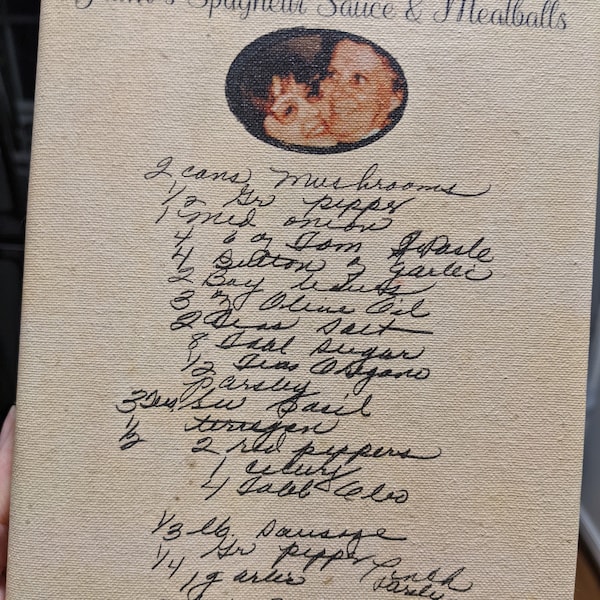 Spaghetti Sauce & Meatballs
2 cans mushrooms
1/2 Gr pipper
1 med onion
4 6 oz Tom Paste
4 Button z Garlic
2 Bay leaves
3 z Olive Oil
2 Teas Salt
8 Teas Sugar
1/2 Teas Oregano
Parsley
3 Teas Sw Basil
1/2 terragon
2 red pippers
1 celery
4 Tabl Oleo
1/3 lb. Sausage
1/4 Gr pipper
1 garlic
Parsley